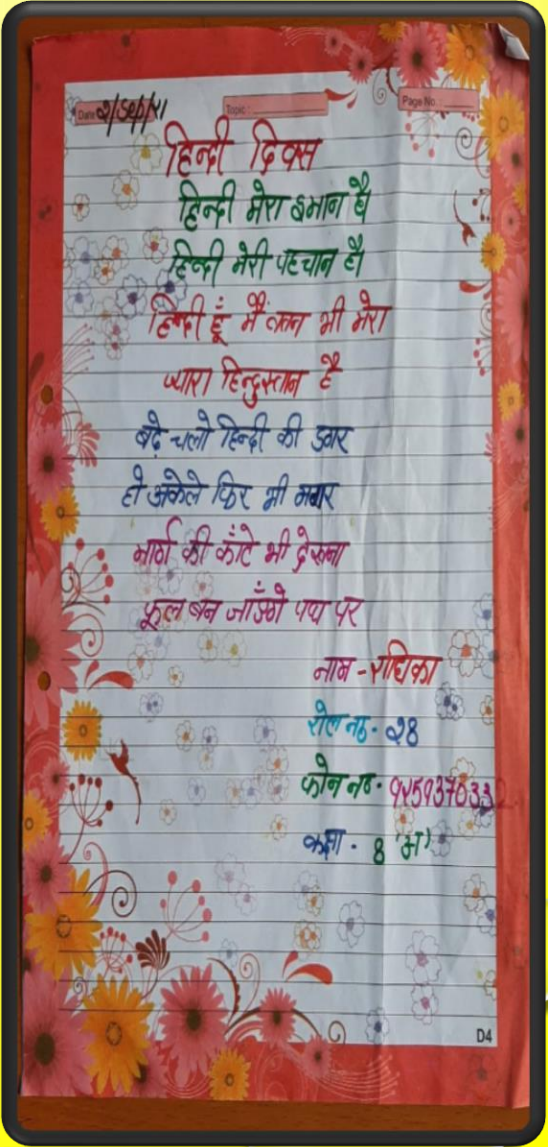 Date Page No.
Topic :
हिन्दी दिवस
हिन्दी मेरा इमान है
हिन्दी मेरी पहचान है।
हिन्दी हूँ मैं वतन भी मेरा
प्यारा हिन्दुस्तान है
बढ़े चलो हिन्दी की डगर
हो अकेले फिर भी मगर
मार्ग की काँटे भी देखना
फूल बन जाँऐगे पथ पर
नाम - राधिका
रोल न० - २8
फोन न० -
कक्षा - 8 'अ'
D4